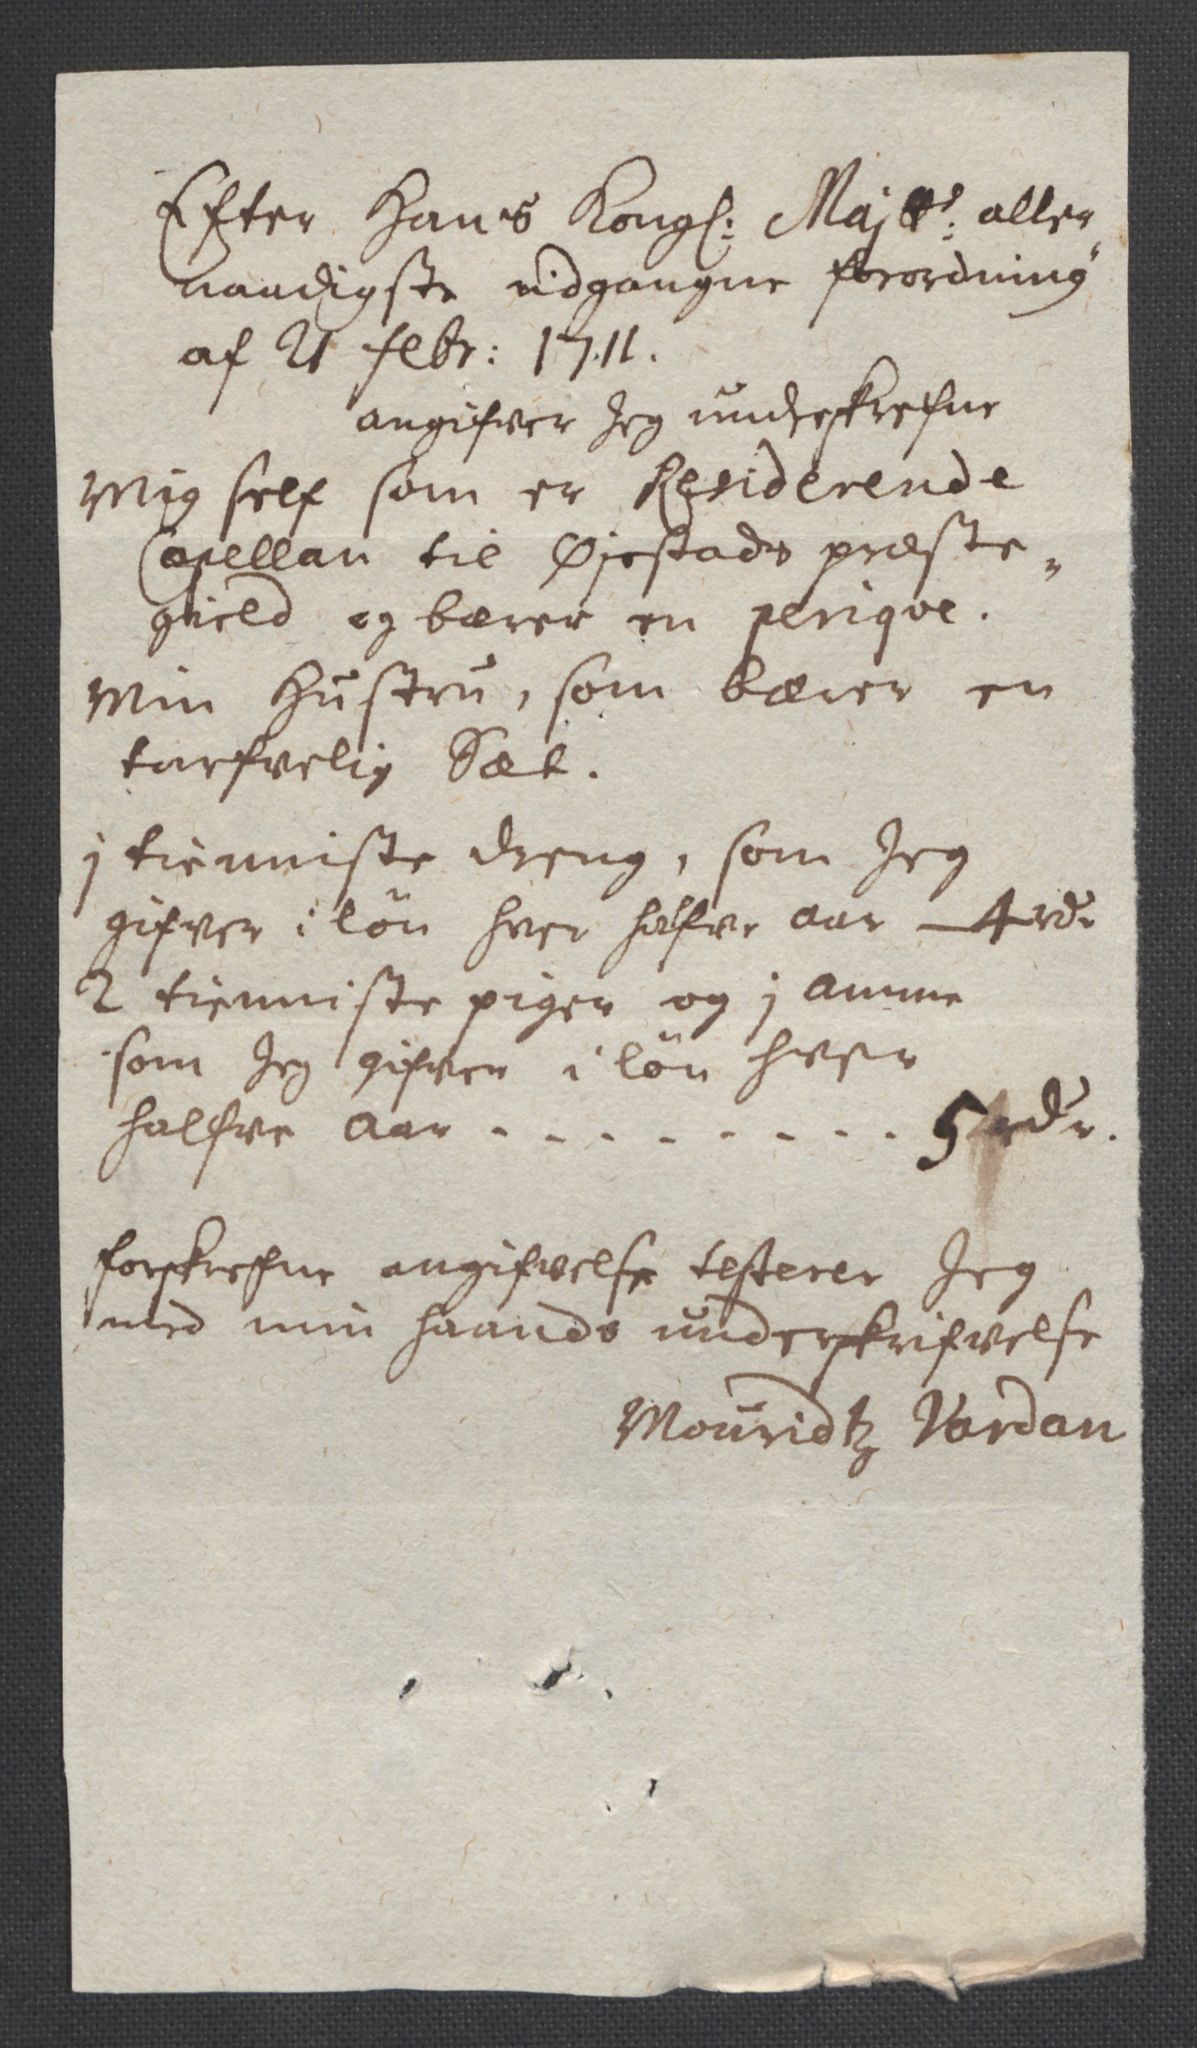 Efter Hans Kongl: Majtts: aller
naadigste udgangne forordning
af 21 febr: 1711.
angifver Jeg underskrefne
Mig self som er Residerende
Capellan til Øjestads præste-
gield og bærer en perique.
Min Hustru, som bærer en
tarfvelig Sæt.
j tienniste dreng, som Jeg
gifver i lön hver halfve aar — 4 rdr
2 tienniste piger og j amme
som Jeg gifver i lön hver
halfve aar . . . . . . . . . 5 rdr.
forskrefne angifvelse testerer Jeg
med min haands underskrifvelse
Mouridtz Vardan